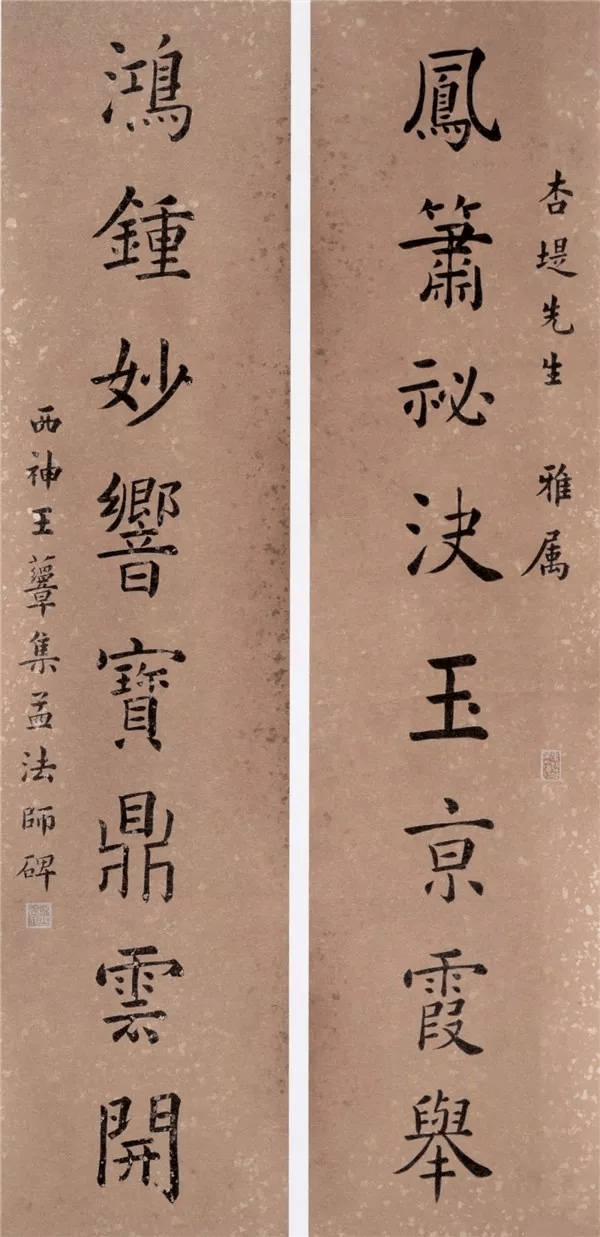 杏堤先生 雅属
鳳簫祕決玉亰霞舉
鴻鍾妙響寶鼎雲開
西神王蘊章集孟法師碑